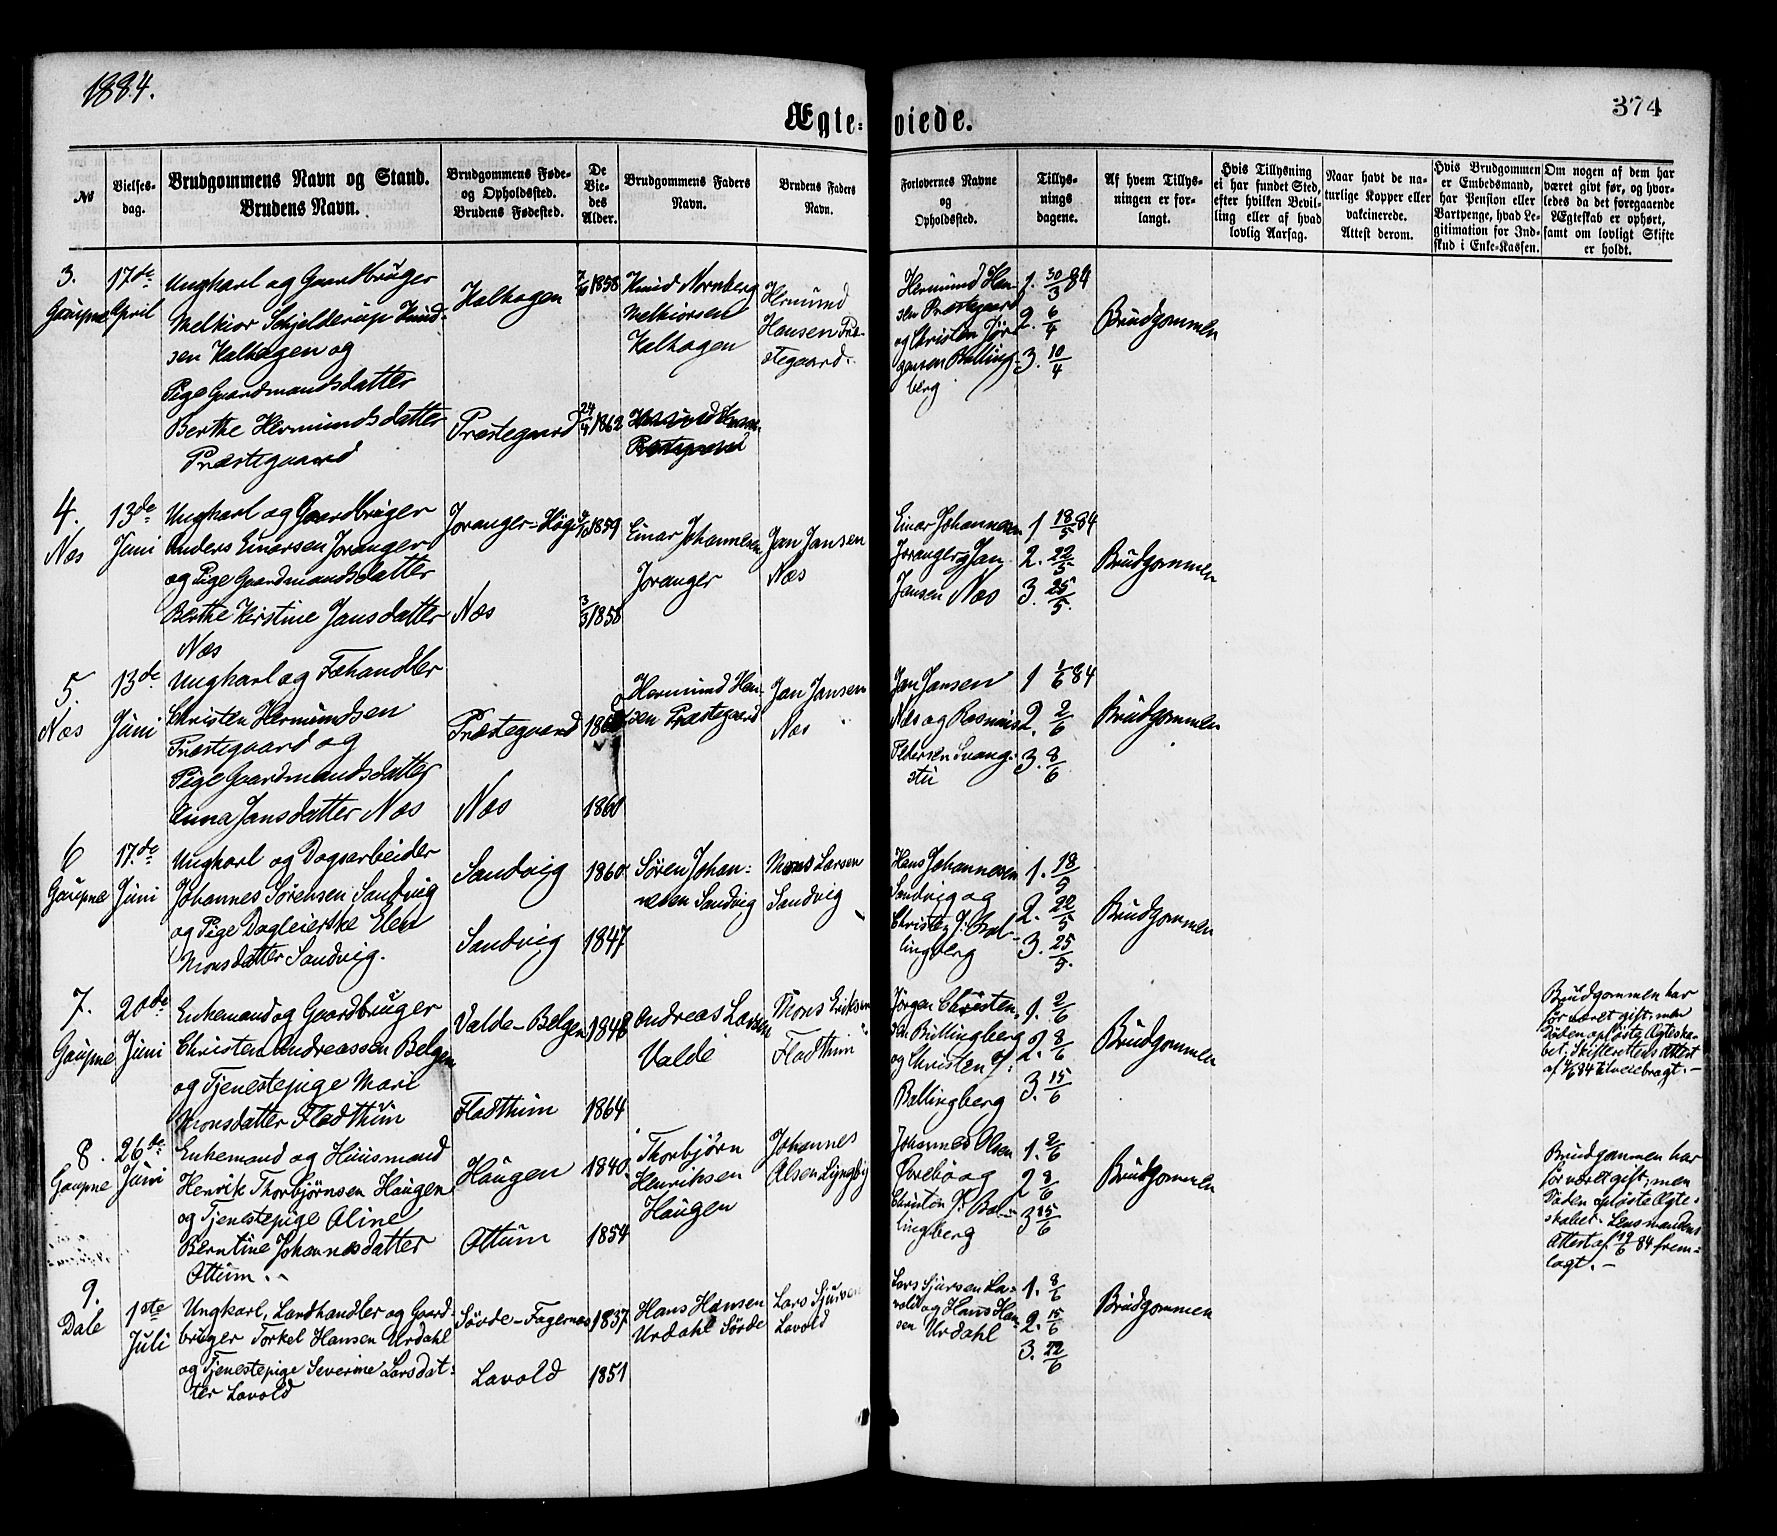 1884.
374
Ægte-viede.
№
Vielses-
dag.
Brudgommens Navn og Stand.
Brudens Navn.
Brudgommens Føde-
og Opholdssted.
Brudens Fødested.
De
Vie-
des
Alder.
Brudgommens Faders
Navn.
Brudens Faders
Navn.
Forlovernes Navne
og
Opholdssted.
Tillys-
nings
dagene.
Af hvem Tillys-
ningen er for-
langt.
Hvis Tillysning
ei har fundet Sted,
efter hvilken Bevil-
ling eller af hvad
lovlig Aarsag.
Naar havt de na-
turlige Kopper eller
vakcinerede.
Attest derom.
Hvis Brudgommen
er Embedsmand,
har Pension eller
Vartpenge, hvad Le-
gitimation for Ind-
skud i Enke-Kassen.
Om nogen af dem har
været givt før, og hvor-
ledes da det foregaaende
Ægteskab er ophørt,
samt om lovligt Skifte
er holdt.
3.
Gaupne
17de
April
Ungkarl og Gaardbruger
Melkior Schjelderup Knud-
sen Kalhagen og
Pige Gaardmandsdatter
Berthe Hermundsdatter
Præstegaard
Kalhagen
Præstegaard
7/6 1858
24/4 1862
Knud Nornberg
Melkiorsen
Kalhagen
Hermund
Hansen Præ-
stegaard.
Hermund Han-
sen Præstegaard
og Christen Jør-
gensen Bolling-
berg
1. 30/3 84
2. 6/4
3. 10/4
Brudgommen
4.
Næs
13de
Juni
Ungkarl og Gaardbruger
Anders Einarsen Joranger
og Pige Gaardmandsdatter
Berthe Kirstine Jansdatter
Næs
Joranger-Høgi
Næs
1859
3/3 1858
Einar Johannesen
Joranger
Jan Jansen
Næs
Einar Johannesen
Joranger og Jan
Jansen Næs
1 18/5 84
2. 22/5
3. 25/5.
Brudgommen
5.
Næs
13de
Juni
Ungkarl og Fæhandler
Christen Hermundsen
Præstegaard og
Pige Gaardmandsdatter
Anna Jansdatter Næs
Præstegaard
Næs
1860
Hermund Han-
sen Præstegaard
Jan Jansen
Næs
Jan Jansen
Næs og Rasmus
Pedersen Svang-
stu
1 1/6 84
2. 2/6
3. 8/6
Brudgommen
6
Gaupne
17.de
Juni
Ungkarl og Dagsarbeider
Johannes Sørensen Sandvig
og Pige Dagleierske Elen
Monsdatter Sandvig.
Sandvig
Sandvig
1860
1847
Søren Johan-
nesen Sandvig
Mons Larsen
Sandvig
Hans Johannesen
Sandvig og
Christen J. Bol-
lingberg
1. 18/5
2. 22/5
3. 25/5.
Brudgommen
7.
Gaupne
20de
Juni
Enkemand og Gaardbruger
Christen Andreassen Belgen
og Tjenestepige Mari
Monsdatter Fladthun
Valde-Belgen
Fladthun
1848
1864
Andreas Larsen
Valde
Mons Eriksen
Fladthun
Jørgen Christen-
sen Bullingberg
og Christen J.
Ballingberg
1. 2/6
2. 8/6
3. 15/6
Brudgommen
Brudgommen har
før været gift, men
Døden opløste Ægteska-
bet; Skifterettens Attest
af 4/6 84 tilveiebragt.-
8.
Gaupne
26de
Juni
Enkemand og Huusmand
Henrik Thorbjørnsen Haugen
og Tjenestepige Oline
Berntine Johannesdatter
Ottum.
Haugen
Ottum
1840
1854
Thorbjørn
Henriksen
Haugen
Johannes
Olsen Lyngbig
Johannes Olsen
Ørebø og
Christen J. Bal-
lingberg
1. 2/6
2 8/6
3 15/6
Brudgommen
Brudgommen har
før været gift, men
Døden opløste Ægte-
skabet. Lensmandens
Attest af 19/6 84 frem-
lagt.-
9.
Dale
1ste
Juli
Ungkarl, Landhandler og Gaard-
bruger Torkel Hansen Urdahl
og Tjenestepige Severine Larsdat-
ter Lavold
Sørde-Fagernæs
Lavold
1837
1851
Hans Hansen
Urdahl Sørde
Lars Sjursen
Lavold
Lars Sjursen La-
vold og Hans Han-
sen Urdahl
1. 8/6
2. 15/6
3. 22/6
Brudgommen